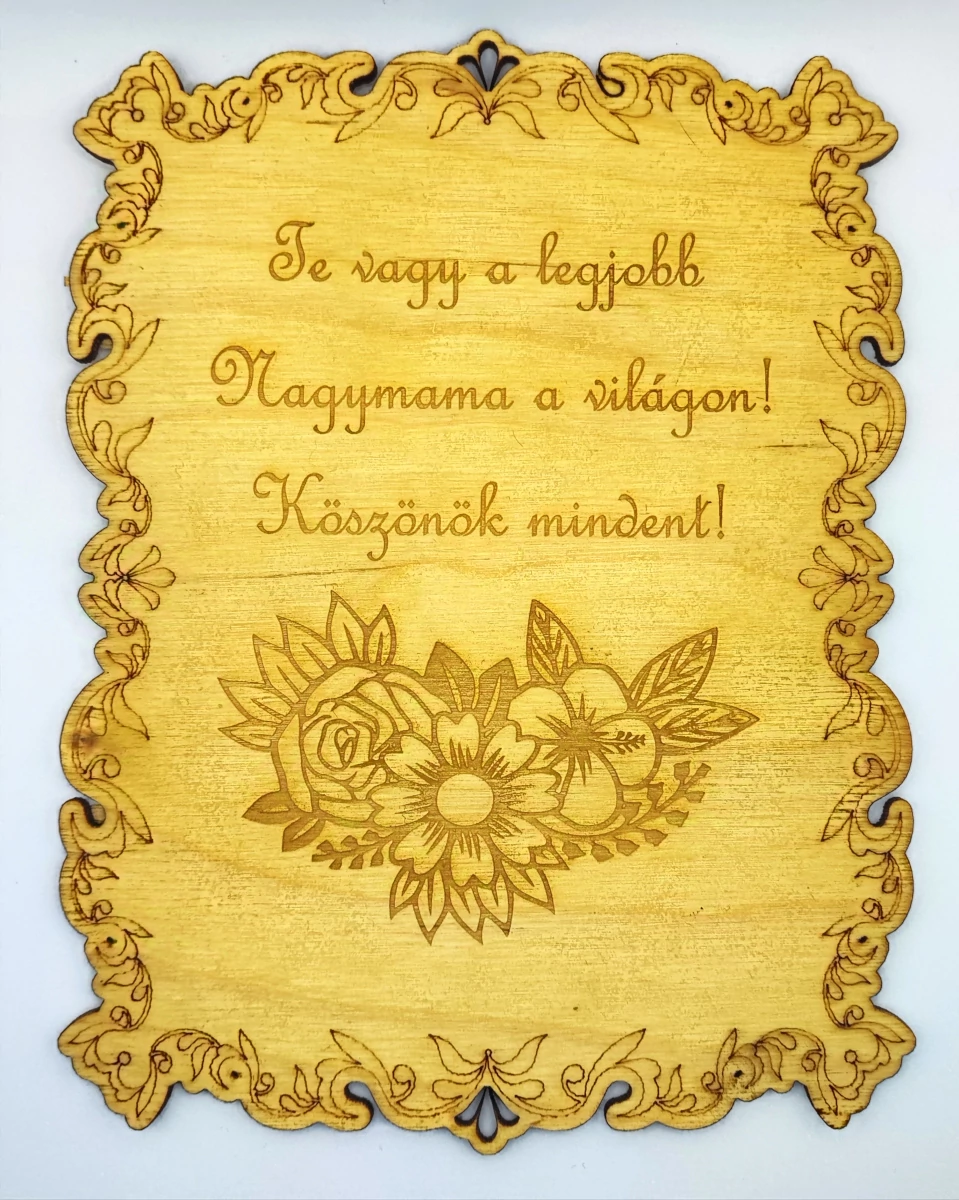 Te vagy a legjobb
Nagymama a világon!
Köszönök mindent!